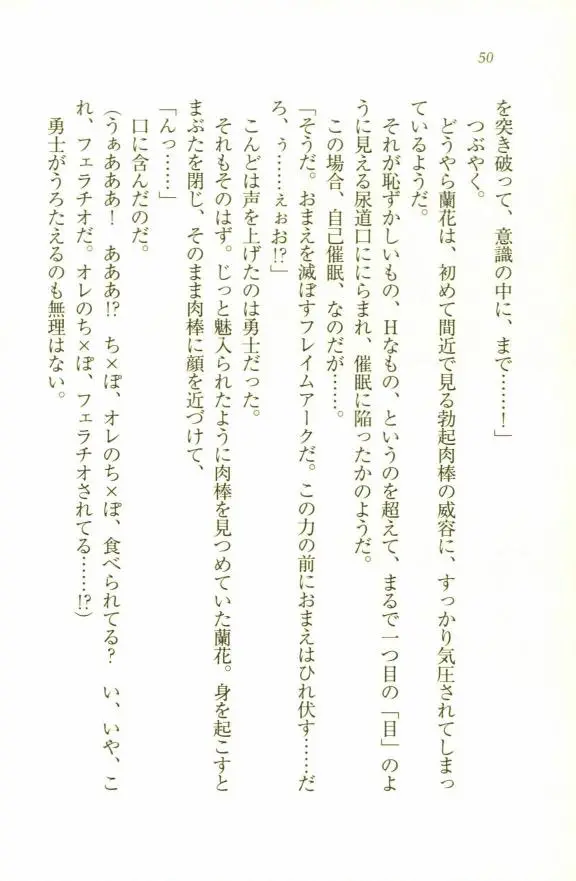 50
を突き破って、意識の中に、まで……！」
つぶやく。
どうやら蘭花は、初めて間近で見る勃起肉棒の威容に、すっかり気圧されてしまっ
ているようだ。
それが恥ずかしいもの、Ｈなもの、というのを超えて、まるで一つ目の「目」のよ
うに見える尿道口ににらまれ、催眠に陥ったかのようだ。
この場合、自己催眠、なのだが……。
「そうだ。おまえを滅ぼすフレイムアークだ。この力の前におまえはひれ伏す……だ
ろ、ぅ……ぇぉお!?」
こんどは声を上げたのは勇士だった。
それもそのはず。じっと魅入られたように肉棒を見つめていた蘭花。身を起こすと
まぶたを閉じ、そのまま肉棒に顔を近づけて、
「んっ……」
口に含んだのだ。
（うぁあああ！　あああ!?　ち×ぽ、オレのち×ぽ、食べられてる？　い、いや、こ
れ、フェラチオだ。オレのち×ぽ、フェラチオされてる……!?）
勇士がうろたえるのも無理はない。